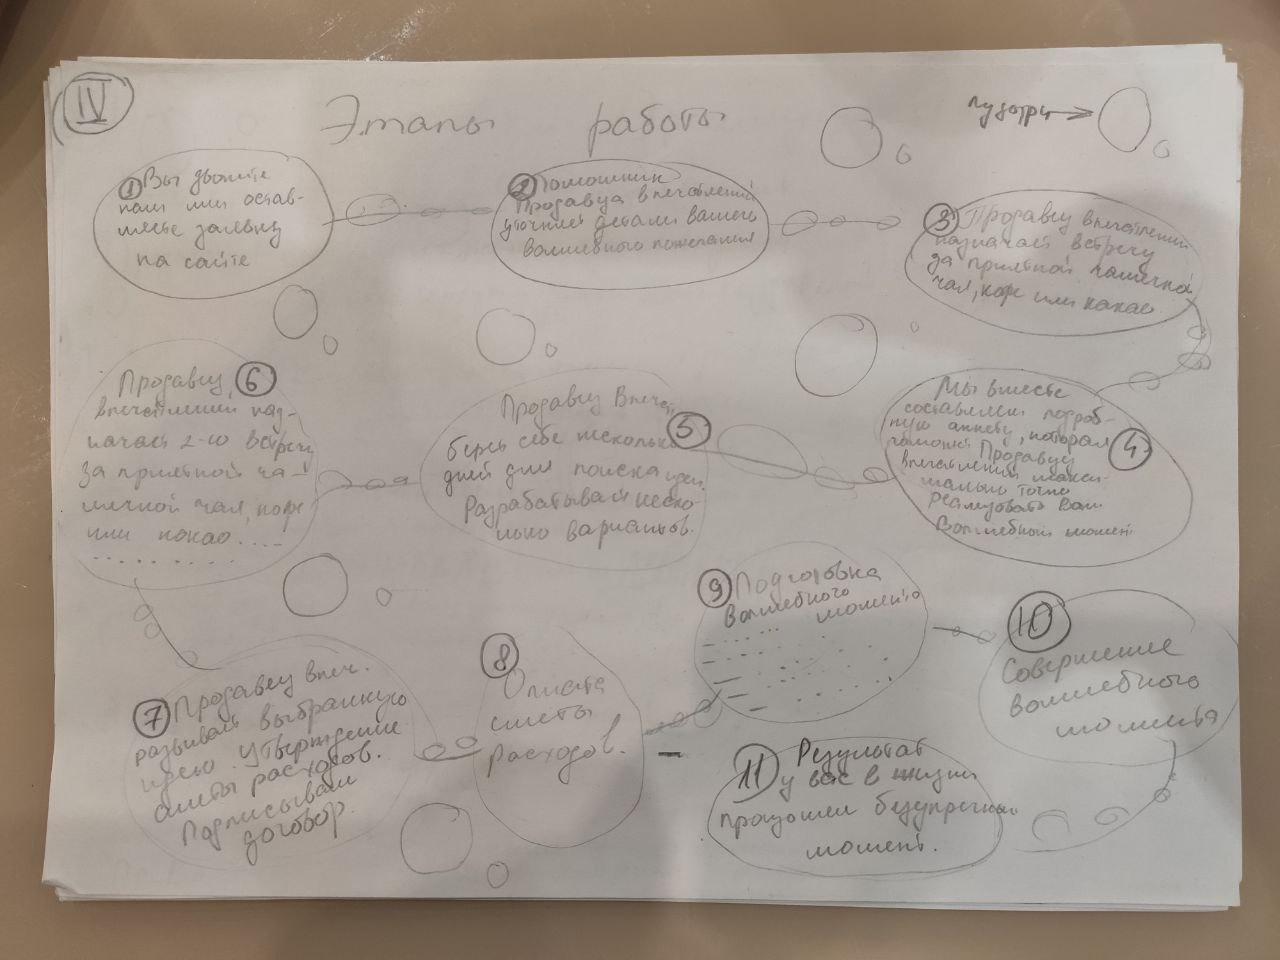 IV
Этапы работы
пузыри
1 Вы звоните
нам или остав-
ляете заявку
на сайте
2 Помошник
Продавца впечатлений
уточняет детали вашего
волшебного пожелания
3 Продавец впечатлений
назначает встречу
за приятной чашечкой
чая, кофе или какао
4 Мы вместе
составляем подроб-
ную анкету, которая
поможет Продавцу
впечатлений макси-
мально точно
реализовать Ваш
Волшебный момент
5 Продавец Впечат.
берёт себе несколько
дней для поиска идеи.
Разрабатывает неско-
лько вариантов.
6 Продавец
впечатлений наз-
начает 2-ю встречу
за приятной ча-
шечкой чая, кофе
или какао.....
..........
7 Продавец впеч.
развивает выбранную
идею. Утверждение
сметы расходов.
Подписываем
договор.
8 Оплата
сметы
расходов.
9 Подготовка
волшебного
момента
10
Совершение
волшебного
момента
11 Результат
у вас в жизни
произошел безупречный
момент.